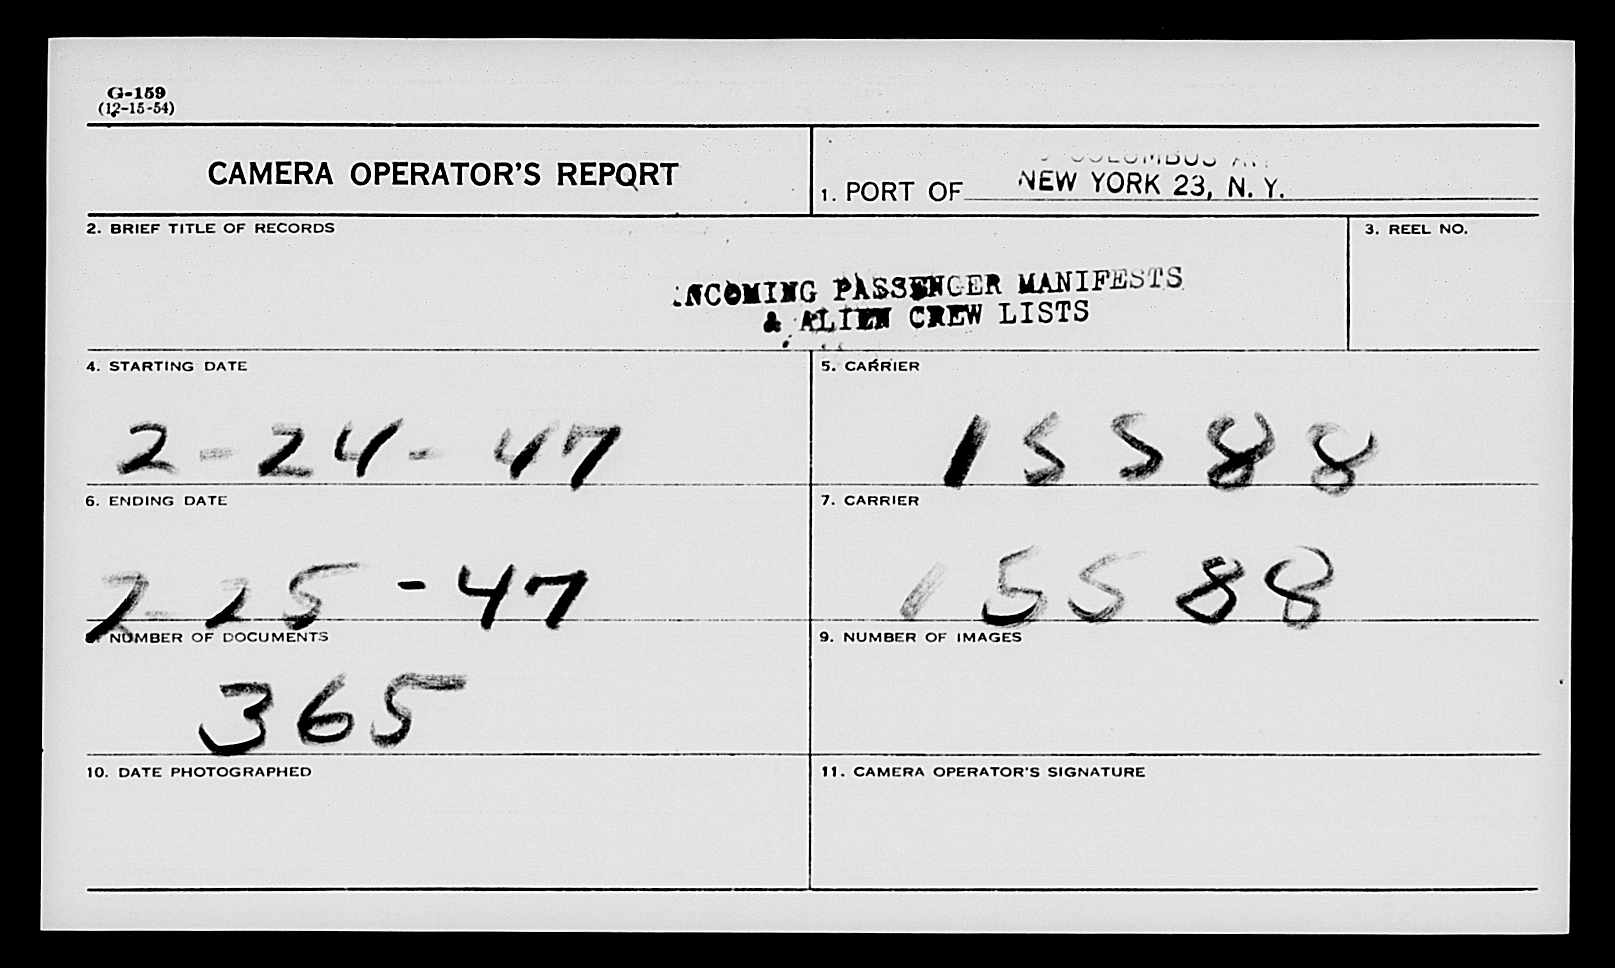 G-159
(12-15-54)
CAMERA OPERATOR'S REPORT
COLUMBUS
1. PORT OF NEW YORK 23, N. Y.
2. BRIEF TITLE OF RECORDS
3. REEL NO.
INCOMING PASSENGER MANIFESTS
& ALIEN CREW LISTS
4. STARTING DATE
5. CARRIER
2-24-47
15588
6. ENDING DATE
7. CARRIER
2-25-47
15588
8. NUMBER OF DOCUMENTS
9. NUMBER OF IMAGES
365
10. DATE PHOTOGRAPHED
11. CAMERA OPERATOR'S SIGNATURE